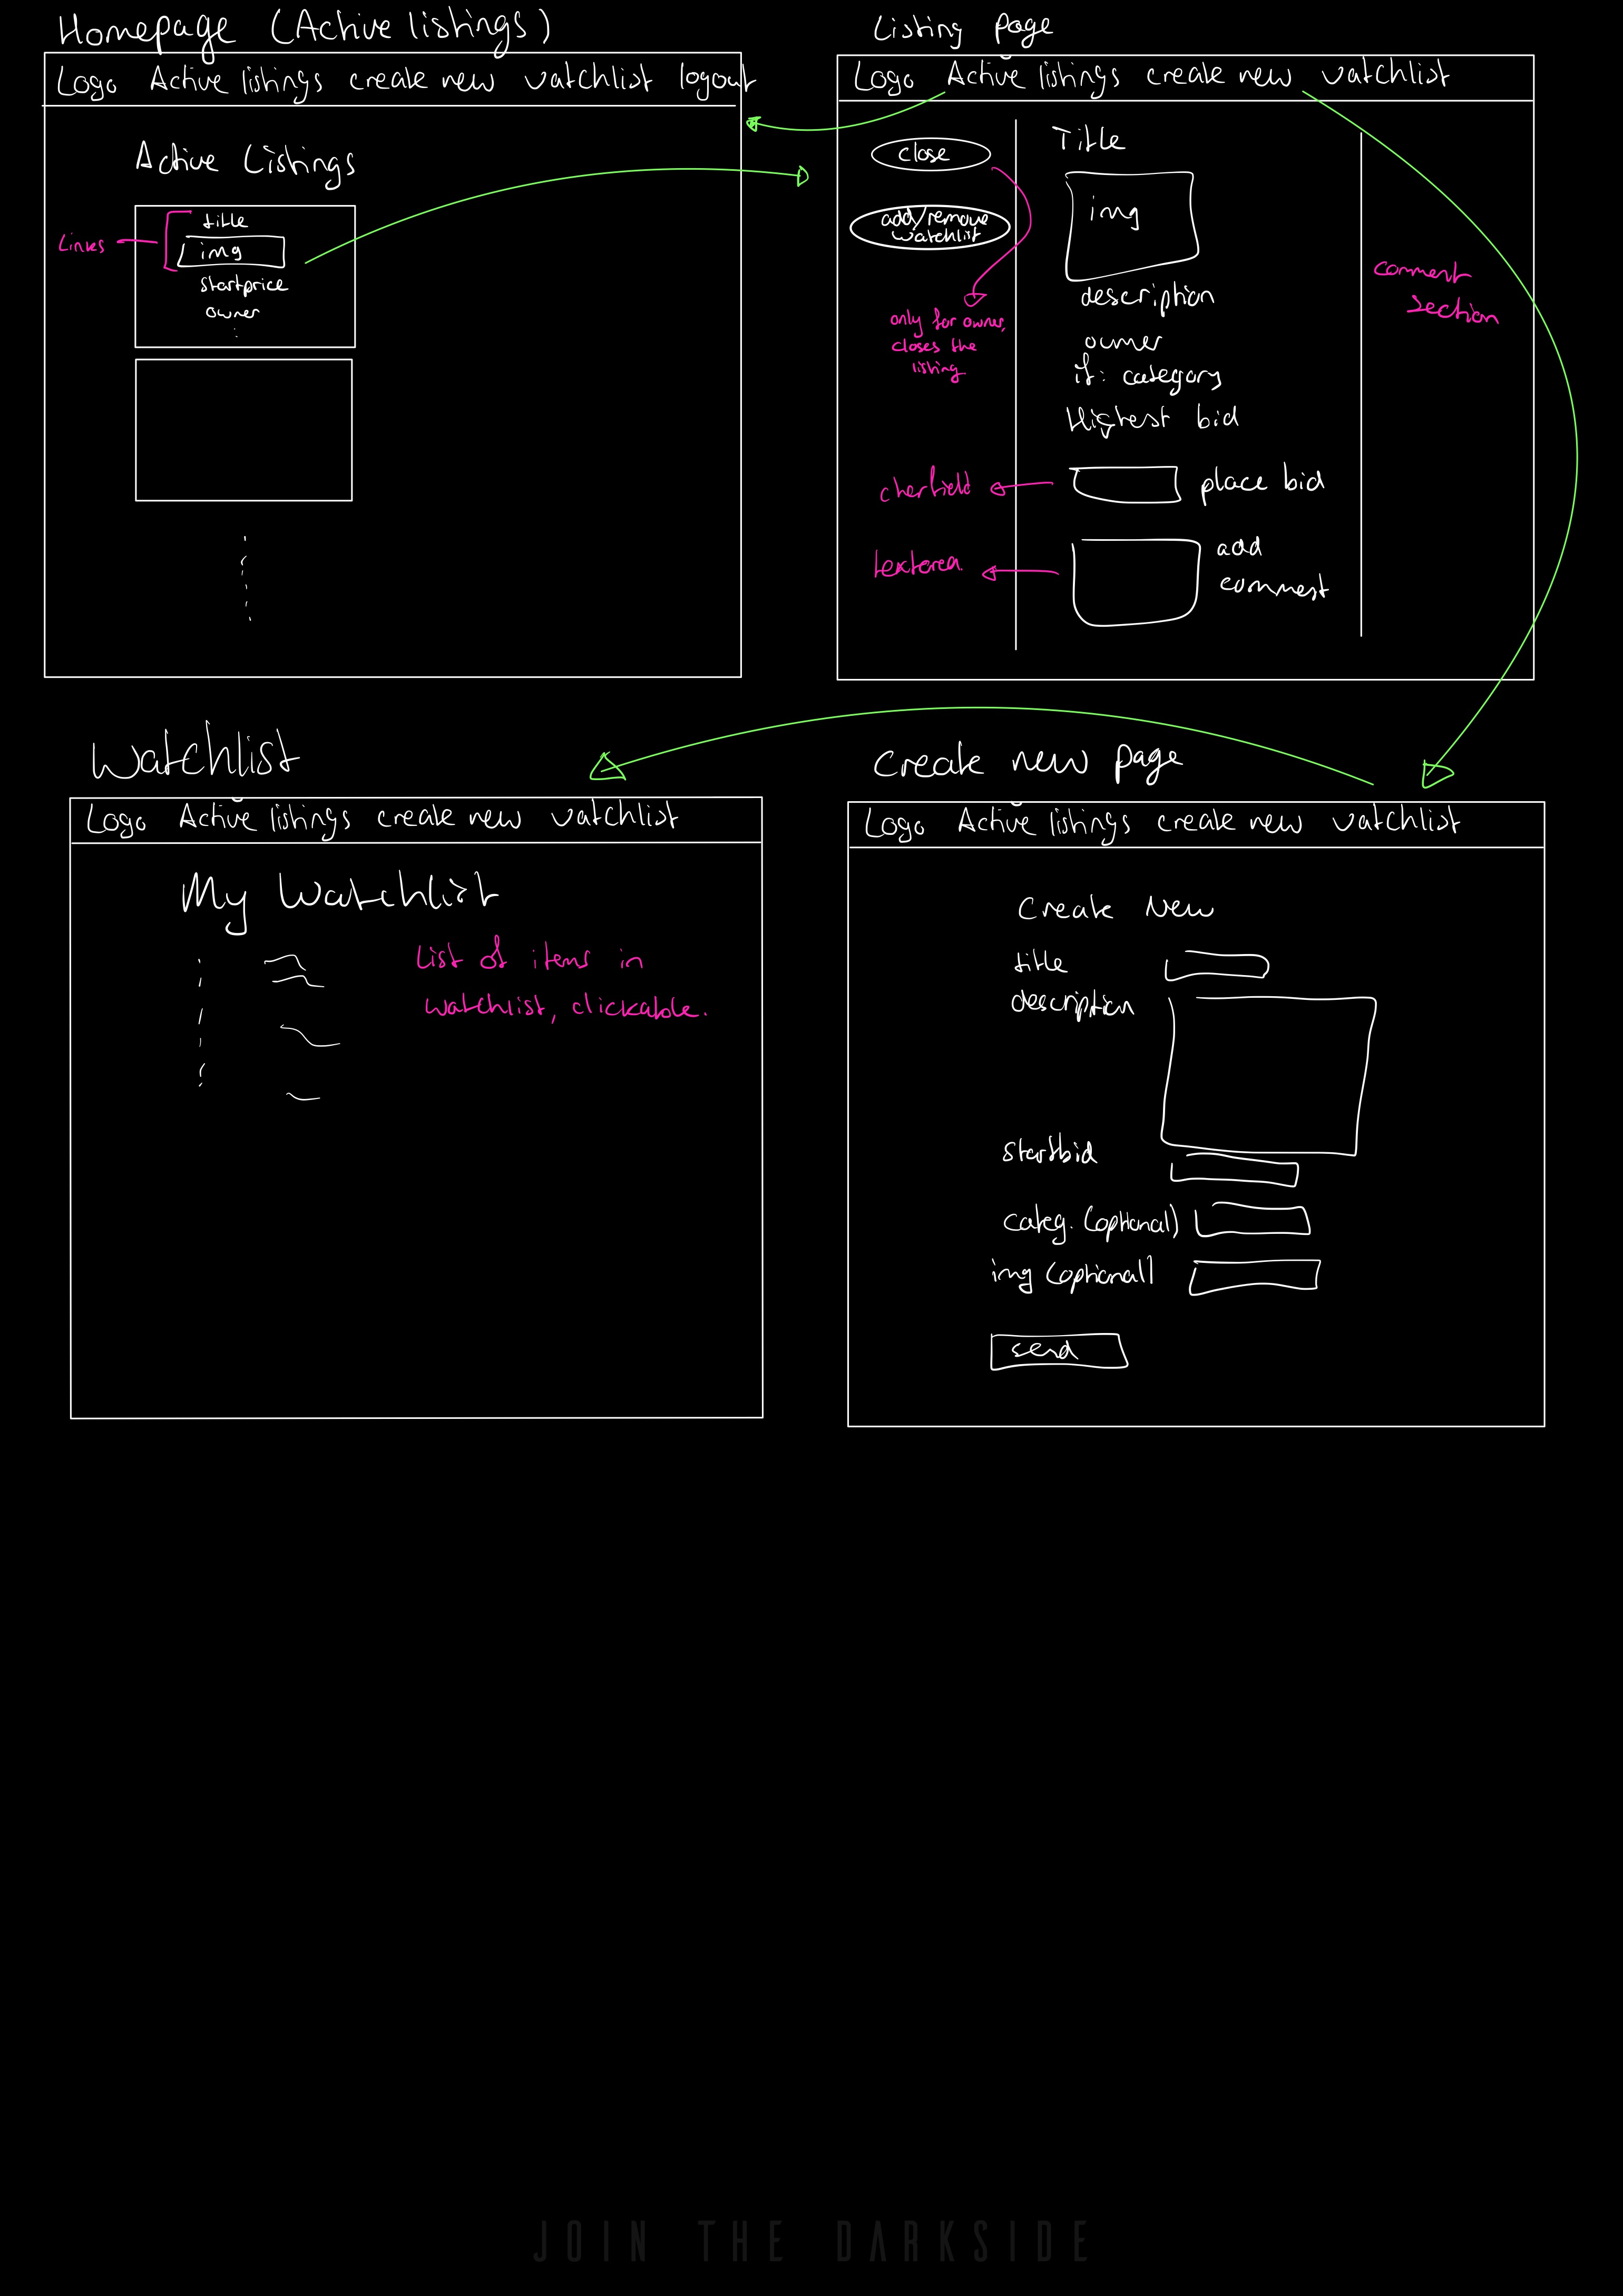 Homepage (Active listings)
Logo Active listings create new watchlist logout
Active Listings
title
img
startprice
owner
Links
Listing page
Logo Active listings create new watchlist
close
add/remove
watchlist
only for owner,
closes the
listing
Title
img
description
owner
if: category
Highest bid
place bid
charfield
add
comment
textarea.
comment
section
Watchlist
Logo Active listings create new watchlist
My Watchlist
List of items in
watchlist, clickable.
Create new page
Logo Active listings create new watchlist
Create New
title
description
startbid
categ. (optional)
img (optional)
send
JOIN THE DARKSIDE